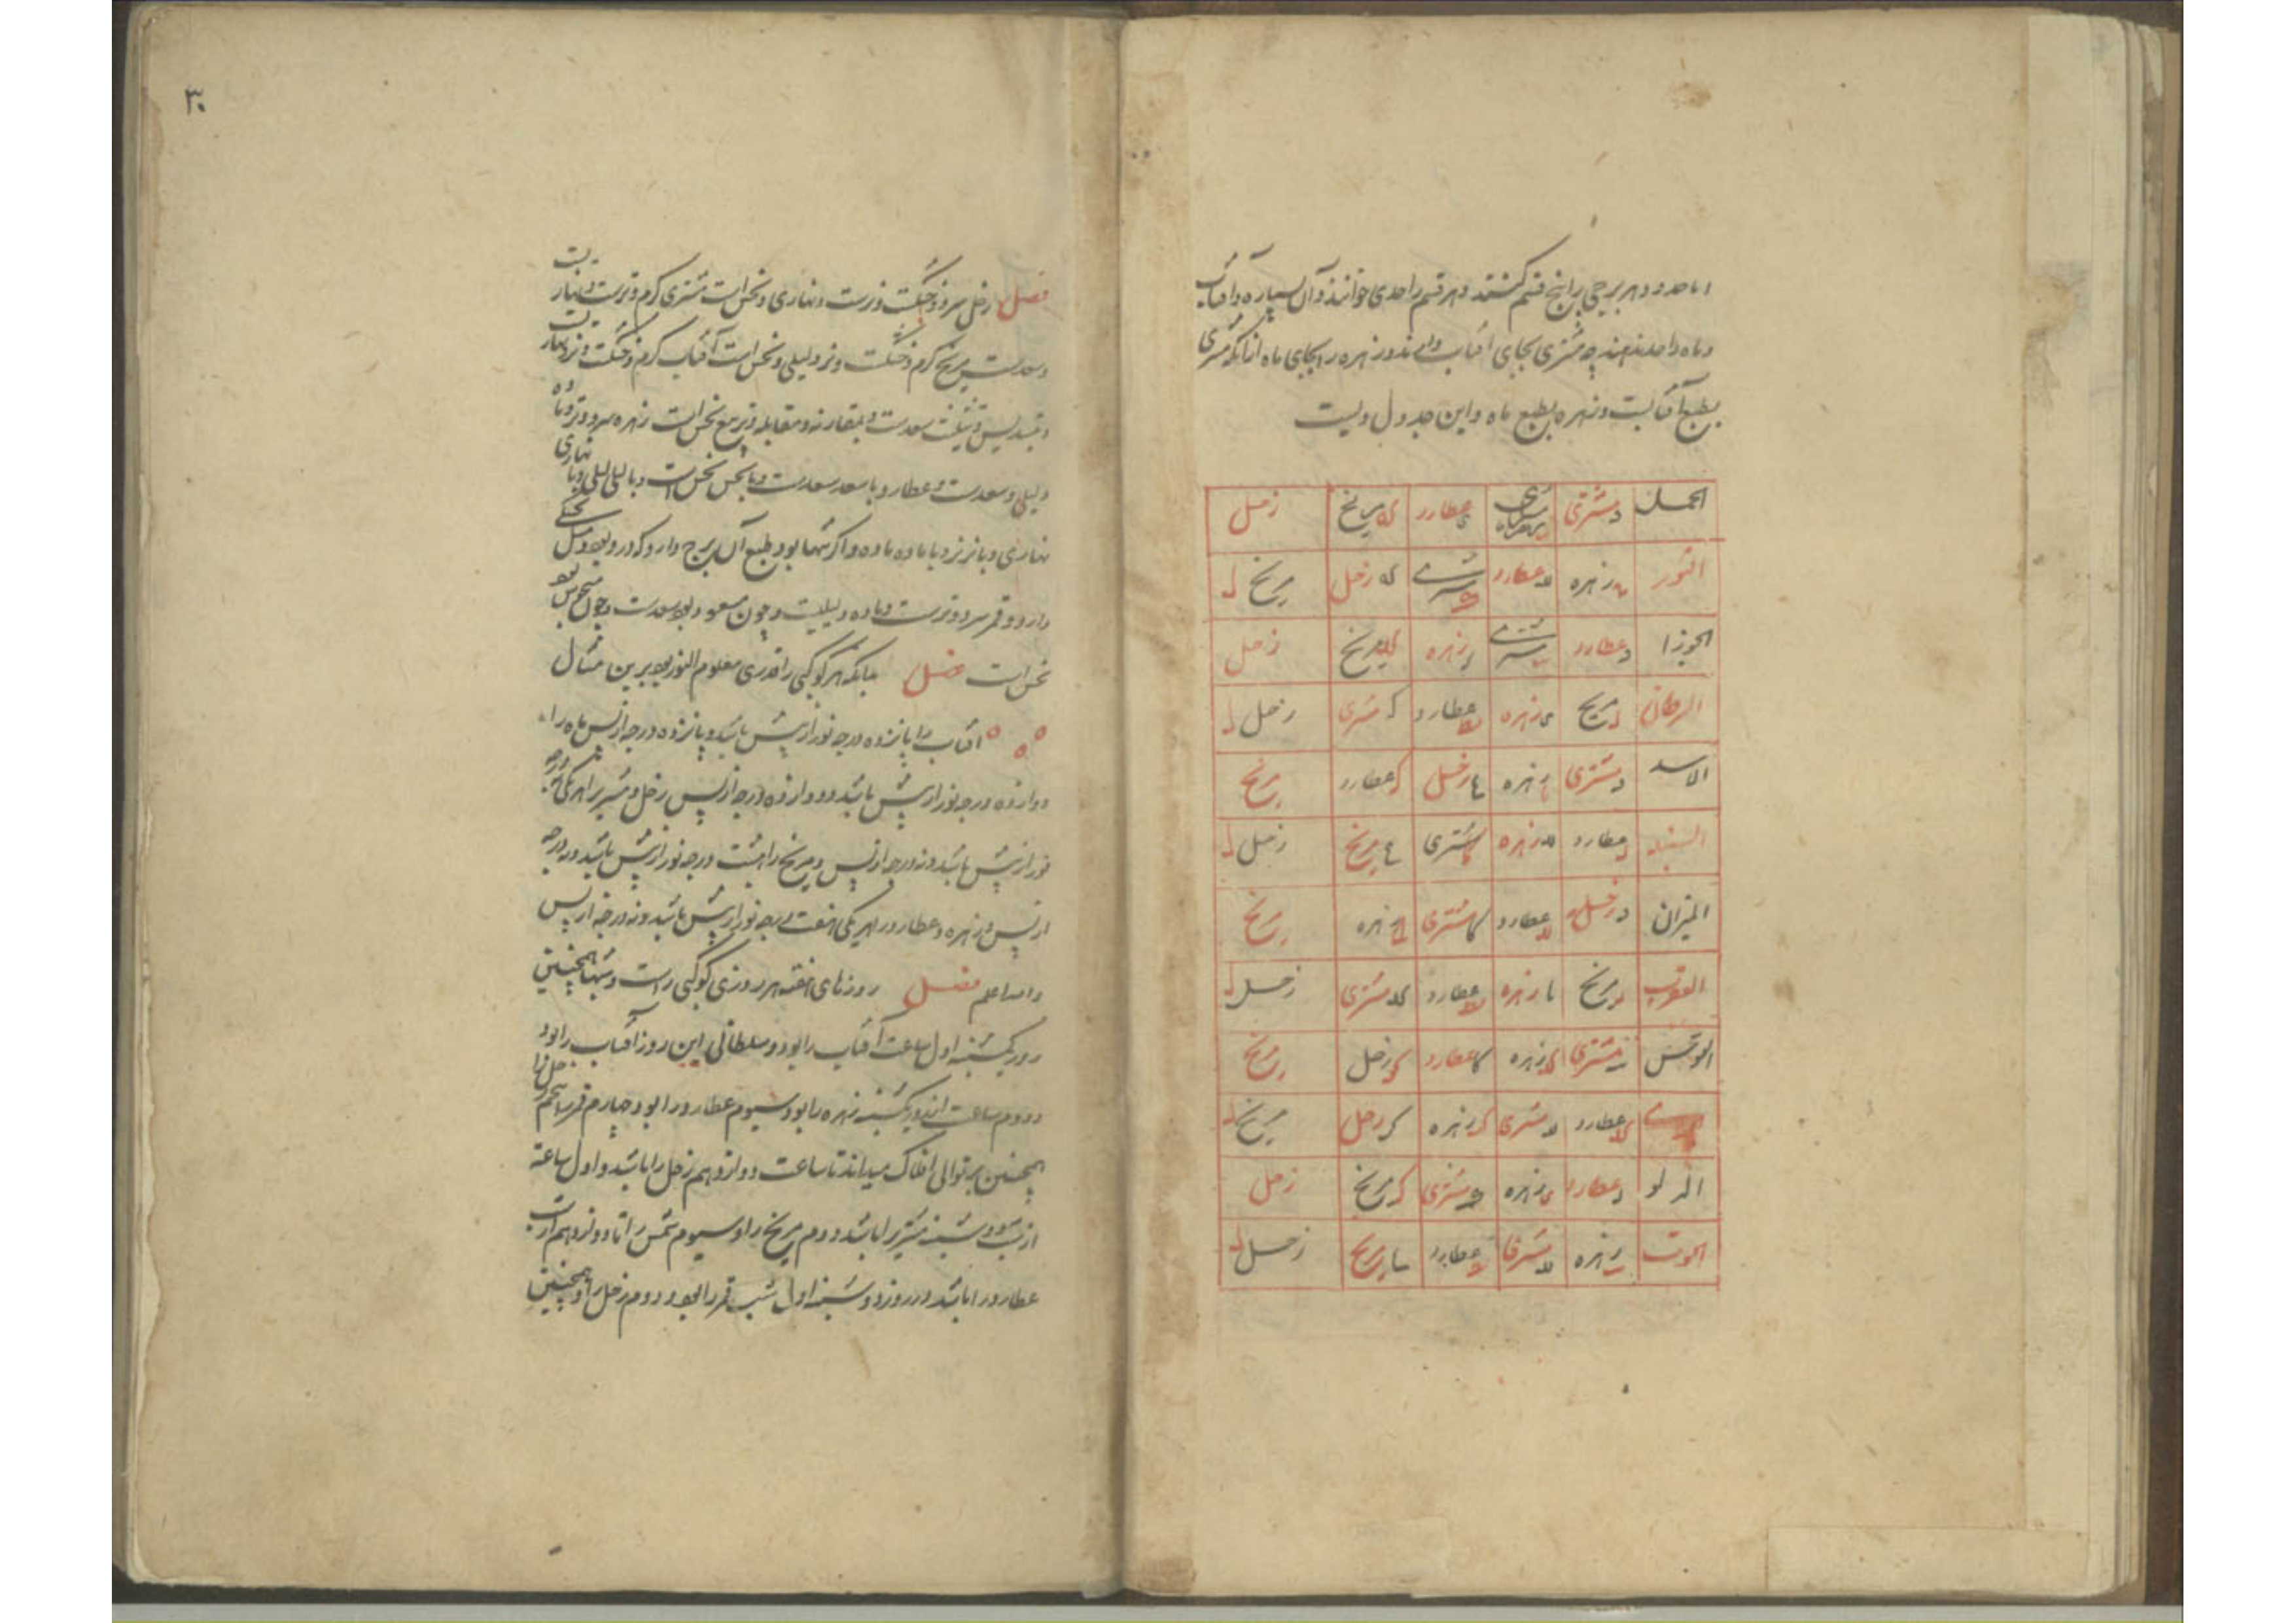 اما حدود هر برجی را پنج قسم کشتند و هر قسم را حدی خوانند و آن سیاره و آفتاب
و ماه را حد ندهند چه مشتری بجای آفتاب دارند و زهره را بجای ماه از آنکه مشتری
بطبع آفتابست و زهره بطبع ماه و این جدول ویست
الحمل مشتری عطارد مریخ زحل
الثور زهره عطارد مشتری زحل مریخ
الجوزا عطارد مشتری زهره مریخ زحل
السرطان مریخ زهره عطارد مشتری زحل
الاسد مشتری زهره زحل عطارد مریخ
السنبله عطارد زهره مشتری مریخ زحل
المیزان زحل عطارد مشتری زهره مریخ
العقرب مریخ زهره عطارد مشتری زحل
القوس مشتری زهره عطارد زحل مریخ
عطارد مشتری زهره زحل مریخ
الدلو عطارد زهره مشتری مریخ زحل
الحوت زهره مشتری عطارد مریخ زحل
۳۰
فصل زحل سرد و خشکست و نرست و نهاری و نحس است مشتری گرم و ترست و نهاریست
و سعدست مریخ گرم و خشکست و نر و لیلی و نحس است آفتاب گرم و خشکست و نر و نهاریست
و بتسدیس و تثلیث سعدست و بمقارنه و مقابله و تربیع نحس است زهره سرد و تر و ماده
و لیلی و سعدست و عطارد با سعد سعدست و با نحس نحس است و با لیلی لیلی و با نهاری
نهاری و با نر نر و با ماده ماده و اگر تنها بود طبع آن برج دارد که درو بود و میل بخشکی
دارد و قمر سرد و ترست و ماده و لیلیست و چون مسعود بود سعدست و چون منحوس بود
نحس است فصل بدانکه هر کوکبی را قدری معلوم النور بود برین مثال
آفتاب را پانزده درجه نور از پیش باشد و پانزده درجه از پس ماه را
دوازده درجه نور از پیش باشد و دوازده درجه از پس زحل و مشتری را هر یکی نه درجه
نور از پیش باشد و نه درجه از پس و مریخ را هشت درجه نور از پیش باشد و نه درجه
از پس و زهره و عطارد را هر یکی هفت درجه نور از پیش باشد و نه درجه از پس
والله اعلم فصل روزهای هفته هر روزی کوکبی راست و شبها همچنین
روز یکشنبه اول ساعت آفتاب را بود و سلطانی این روز آفتاب را بود
و دوم ساعت از روز یکشنبه زهره را بود و سیوم عطارد را بود و چهارم قمر را پنجم زحل را
همچنین بر توالی افلاک میداند تا ساعت دوازدهم زحل را باشد و اول ساعة
از شب دوشنبه مشتری را باشد و دوم مریخ را و سیوم شمس را تا دوازدهم از شب
عطارد را باشد و روز دوشنبه اول شب قمر را بود و دوم زحل را و همچنین